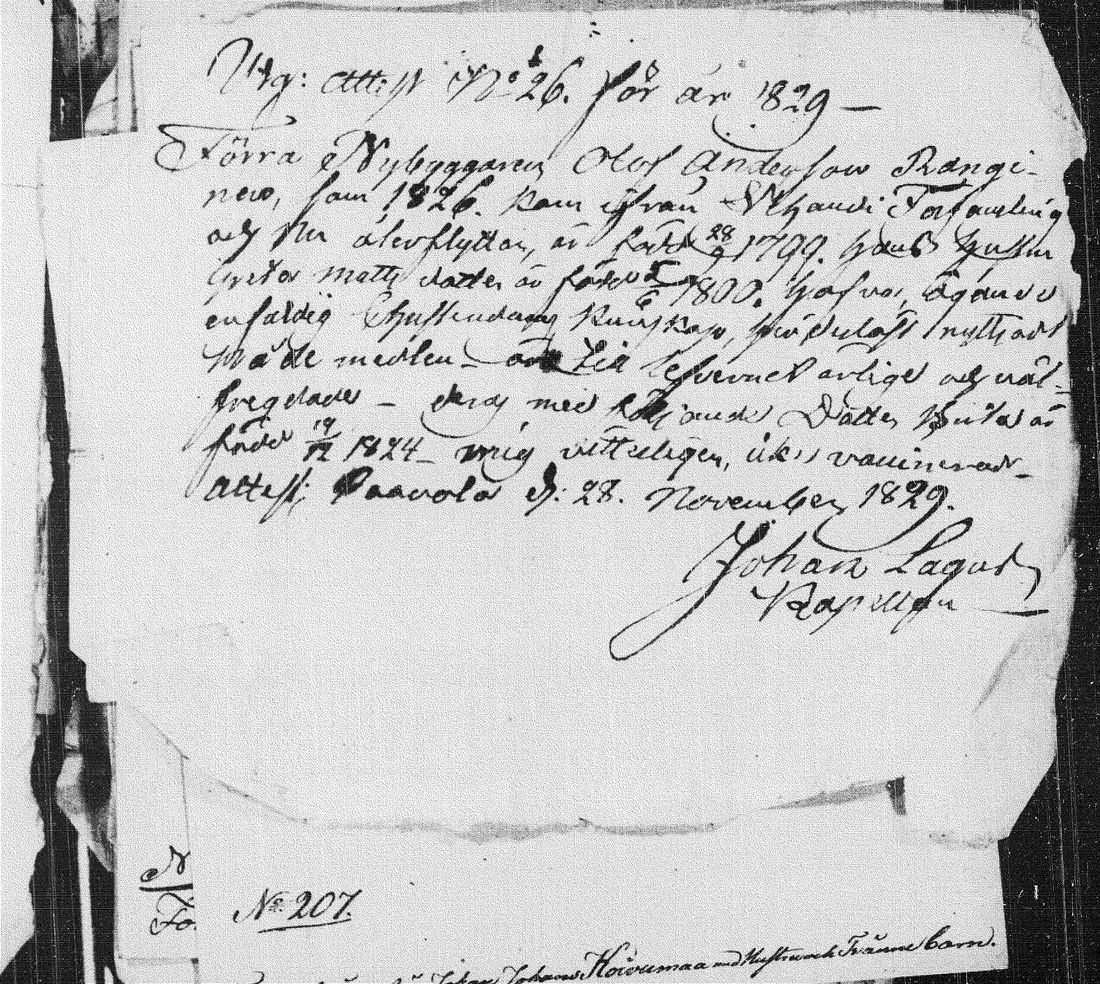 Utg: Attest No 26. för år 1829 –
Förra Nybyggaren Olof Andersson Rangi-
nen, som 1826. kom ifrån Församling
och nu återflyttar, är född 28/9 1799. hans hustru
Greta Matts dotter är född 1800. hafva, ägande
enfaldig Christendoms kunskap, nyttjat
Nådemedlen – sitt lefverne årlige och väl-
fregdade – deras med följande Dotter Brita är
född 19/12 1824 – mig vitterligen, vaccinerad –
Attest: Paavola d: 28. November 1829.
Johan Lagus
Kapellan
N
Fö
No 207.
Johan Johans Hoivumaa med Hustru och Tvänne Barn.